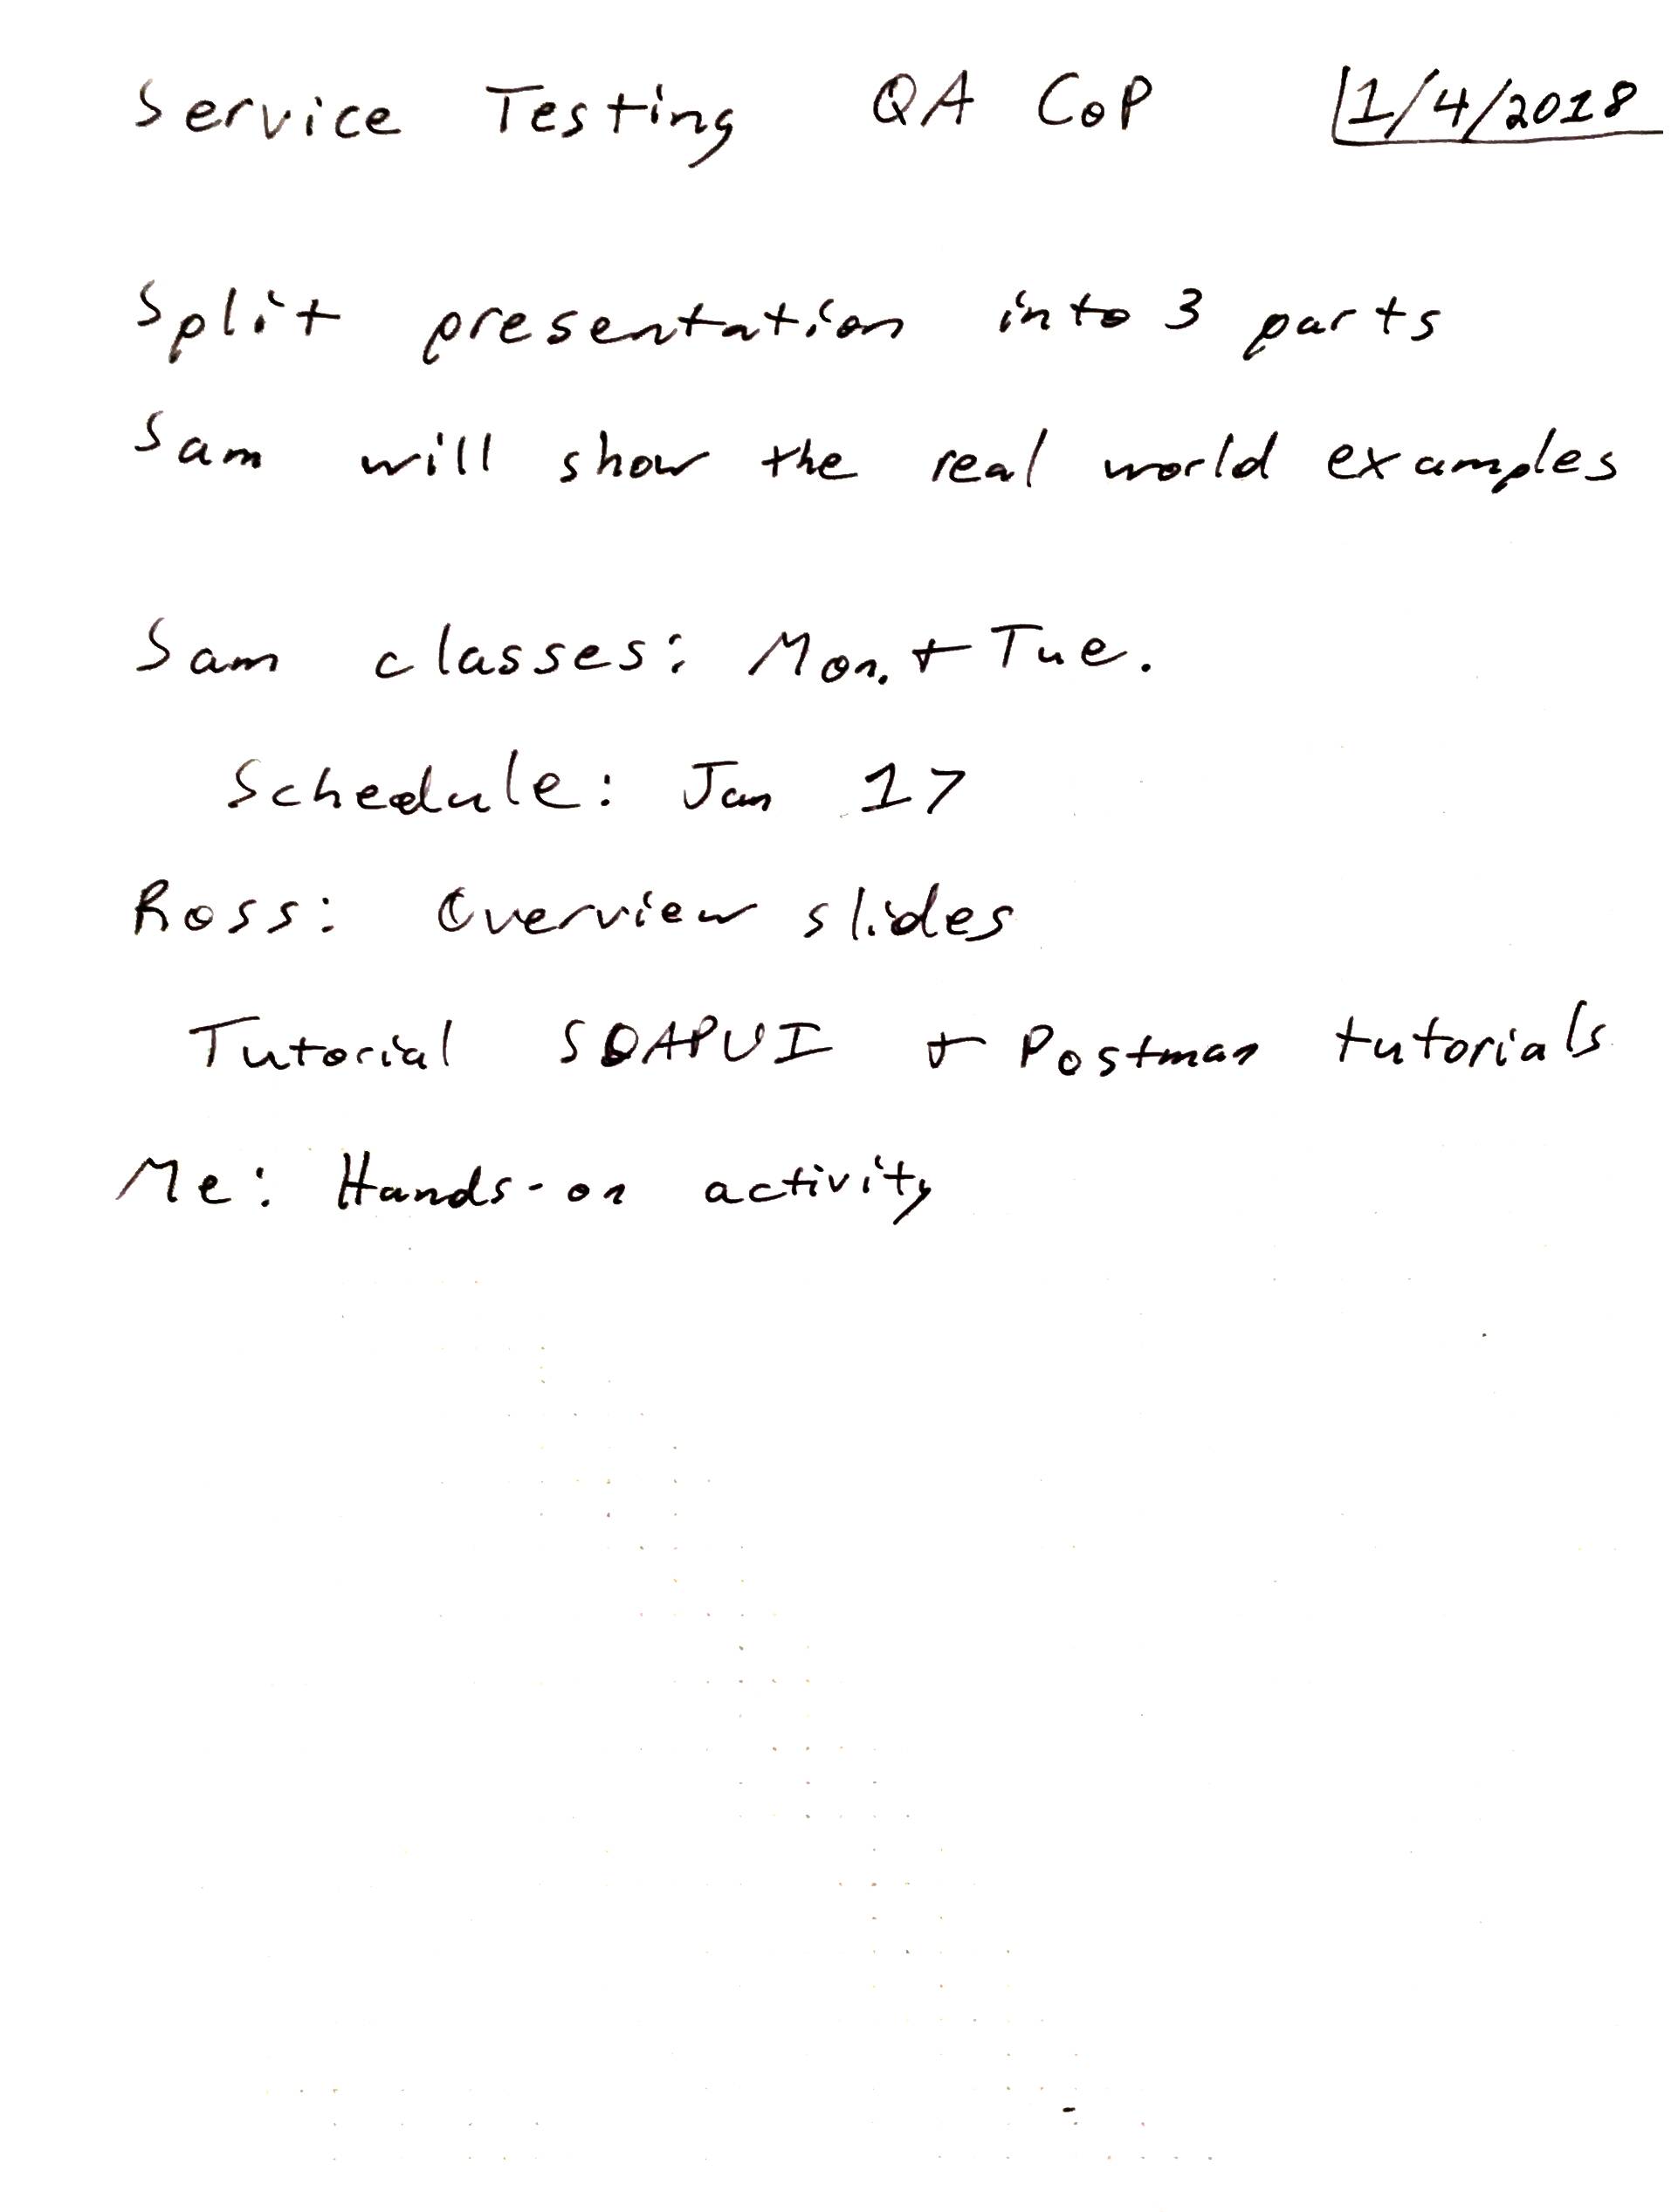 Service Testing QA CoP 1/4/2018
Split presentation into 3 parts
Sam will show the real world examples
Sam classes: Mon. + Tue.
Schedule: Jan 17
Ross: Overview slides
Tutorial SOAPUI + Postman tutorials
Me: Hands-on activity